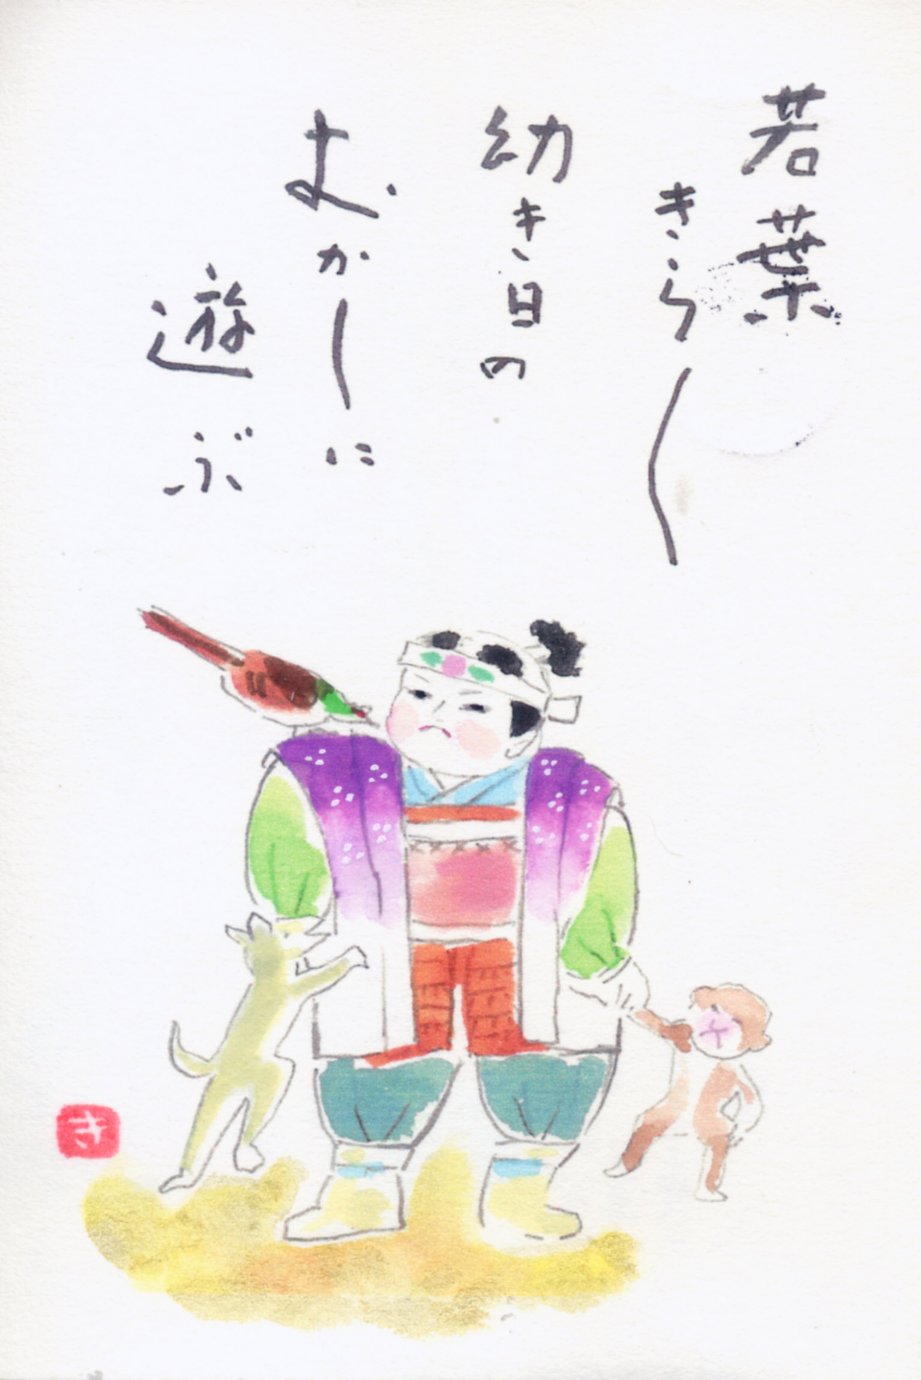 若葉
きら〱
幼き日の
むかしに
遊ぶ
き